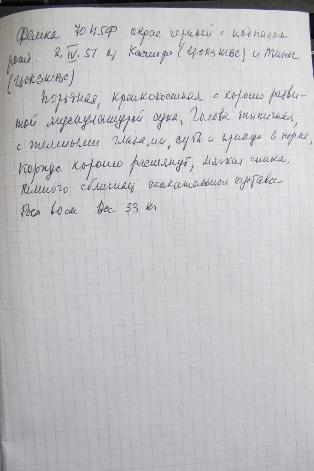 Фемка 7045Ф окрас черный с подпалом
рожд. 2.IV.51 от Кастора (ЦОКЗЖВС) и Тины
(ЦОКЗЖВС)
Породная, крепкокостная с хорошо разви-
той мускулатурой сука, Голова типичная,
с темными глазами, зубы и прикус в норме,
Корпус хорошо растянут, мягкая спина.
Немного сближает скакательные суставы
Рост 60 см Вес 33 кг